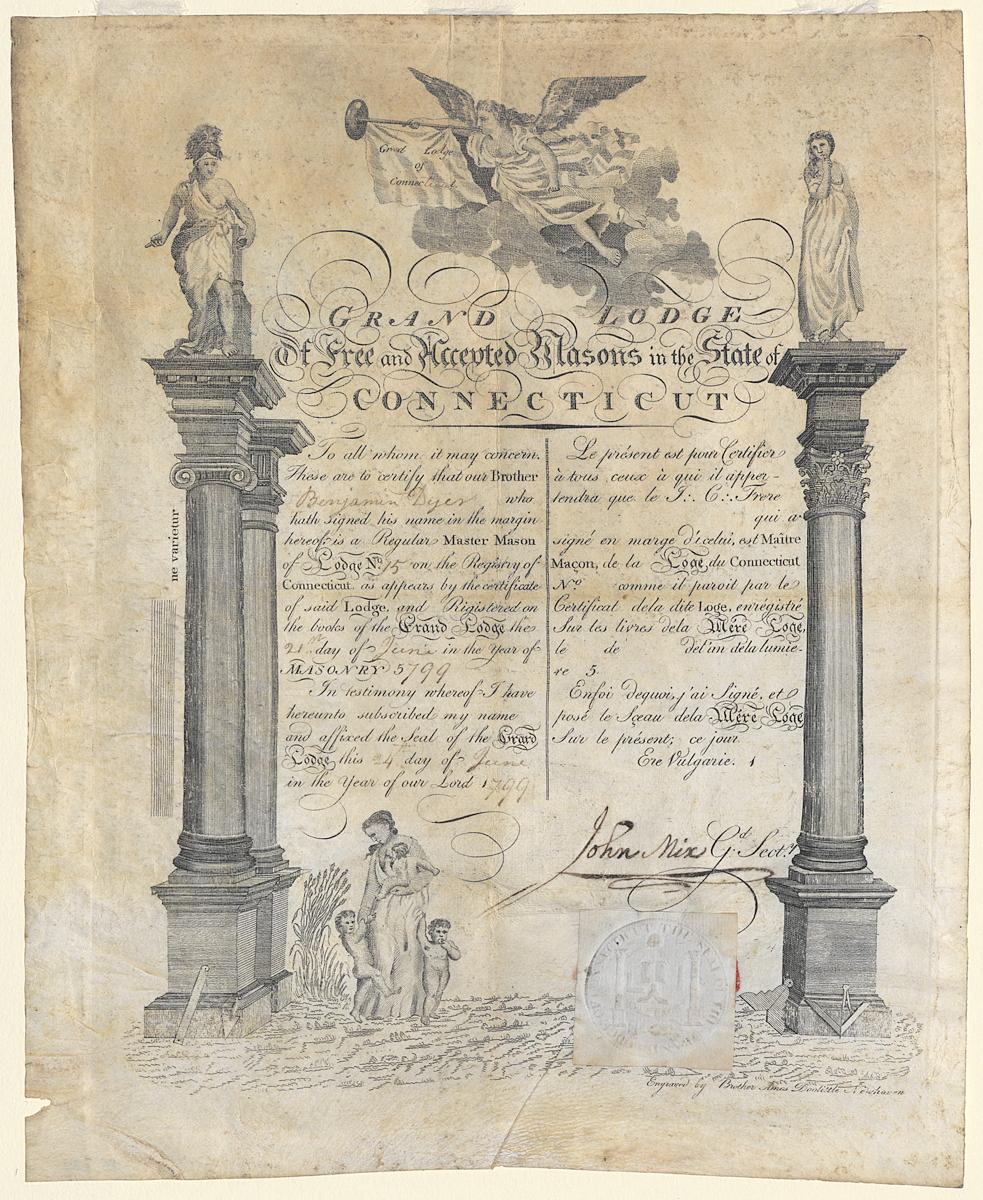 Grand Lodge
of
Connecticut
GRAND LODGE
Of Free and Accepted Masons in the State of
CONNECTICUT
ne varietur
To all whom it may concern.
These are to certify that our Brother
Benjamin Dyer who
hath signed his name in the margin
hereof: is a Regular Master Mason
of Lodge No. 15 on the Registry of
Connecticut. as appears by the certificate
of said Lodge, and Registered on
the books of the Grand Lodge the
day of June in the Year of
MASONRY 5799
In testimony whereof I have
hereunto subscribed my name
and affixed the Seal of the Grand
Lodge this 24th day of June
in the Year of our Lord 1799
Le présent est pour Certifier
à tous ceux à qui il apper-
tendra que le T.. C.. Frere
qui a
signé en marge d'icelui, est Maître
Maçon, de la Loge du Connecticut
No. comme il paroit par le
Certificat dela dite Loge, enrégistré
Sur les livres dela Mére Loge,
le de del'an dela lumie-
re 5
Enfoi dequoi, j'ai Signé, et
posé le Sçeau dela Mére Loge
Sur le présent; ce jour
Ere Vulgarie. 1
John Mix Gd. Secty.
Engraved by Brother Amos Doolittle Newhaven